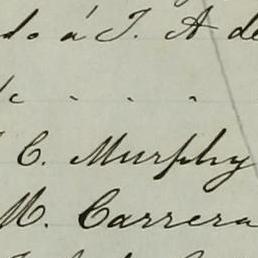 do á T. A de
C. Murphy
M. Carrera